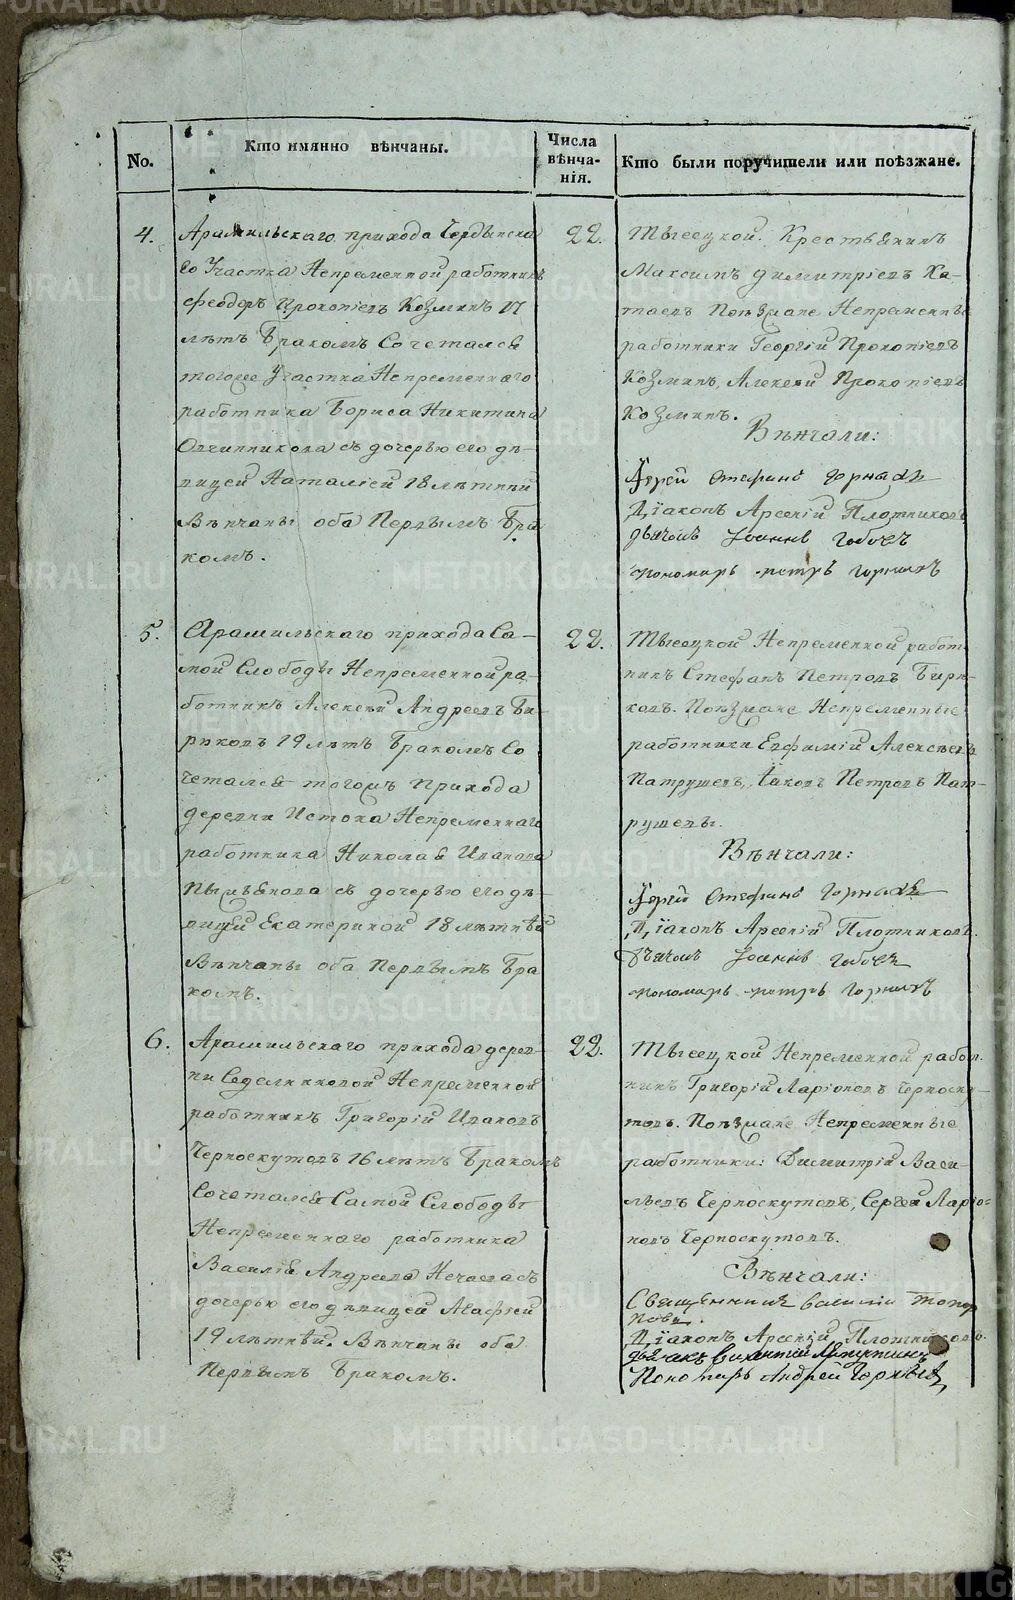 No.
Кто имянно вѣнчаны.
Числа
вѣнча-
нія.
Кто были поручители или поѣзжане.
4.
Арамильскаго прихода
го Участка Непременной работникъ
Феодоръ Прокопіевъ Козминъ 17
лѣтъ Бракомъ Сочетался
тогоже Участка Непременнаго
работника Бориса Никитина
Овчинникова съ дочерью его дѣ-
вицей Наталіей 18 лѣтней
Вѣнчаны оба Первымъ Бра
комъ.
22.
Тысецкой. Крестьянинъ
Максимъ Димитріевъ Ка-
таевъ Поѣзжане Непременные
работники Георгій Прокопіевъ
Козминъ, Алексей Прокопіевъ
Козминъ.
Вѣнчали:
Іерей Стефанъ Горныхъ
Діаконъ Арсеній Плотниковъ
дьячокъ Іоаннъ
пономарь петръ Горныхъ
5.
Арамильскаго прихода Са-
мой Слободы Непременной ра-
ботникъ Алексей Андреевъ Би-
рюковъ 19 лѣтъ Бракомъ Со
четался тогожъ Прихода
деревни Истока Непременнаго
работника Николая Иванова
съ дочерью его дѣ-
вицей Екатериной 18 лѣтней
Вѣнчаны оба Первымъ Бра
комъ.
22.
Тысецкой Непременной работ
никъ Стефанъ Петровъ Бирю-
ковъ. Поѣзжане Непременные
работники Евфимій Алексѣевъ
Патрушевъ, Іаковъ Петровъ Пат-
рушевы.
Вѣнчали:
Іерей Стефанъ Горныхъ
Діаконъ Арсеній Плотниковъ.
дьячокъ Іоаннъ
пономарь петръ Горныхъ
6.
Арамильскаго прихода дерев-
ни Седельниковой Непременной
работникъ Григорій Ивановъ
Черноскутовъ 16 лѣтъ Бракомъ
Сочетался Самой Слободы
Непременнаго работника
Василія Андреева Нечаева съ
дочерью его дѣвицей Агафіей
19 лѣтней. Вѣнчаны оба
Первымъ Бракомъ.
22.
Тысецкой Непременной работ.
никъ Григорій Ларіоновъ Черноску-
товъ. Поѣзжане Непременные
работники: Димитрій Васи-
льевъ Черноскутовъ, Сергей Ларіо-
новъ Черноскутовъ.
Вѣнчали:
Священникъ Василій Топор
ковъ.
Діаконъ Арсеній Плотниковъ.
дьячокъ
Пономарь Андрей Горныхъ
METRIKI.GASO-URAL.RU